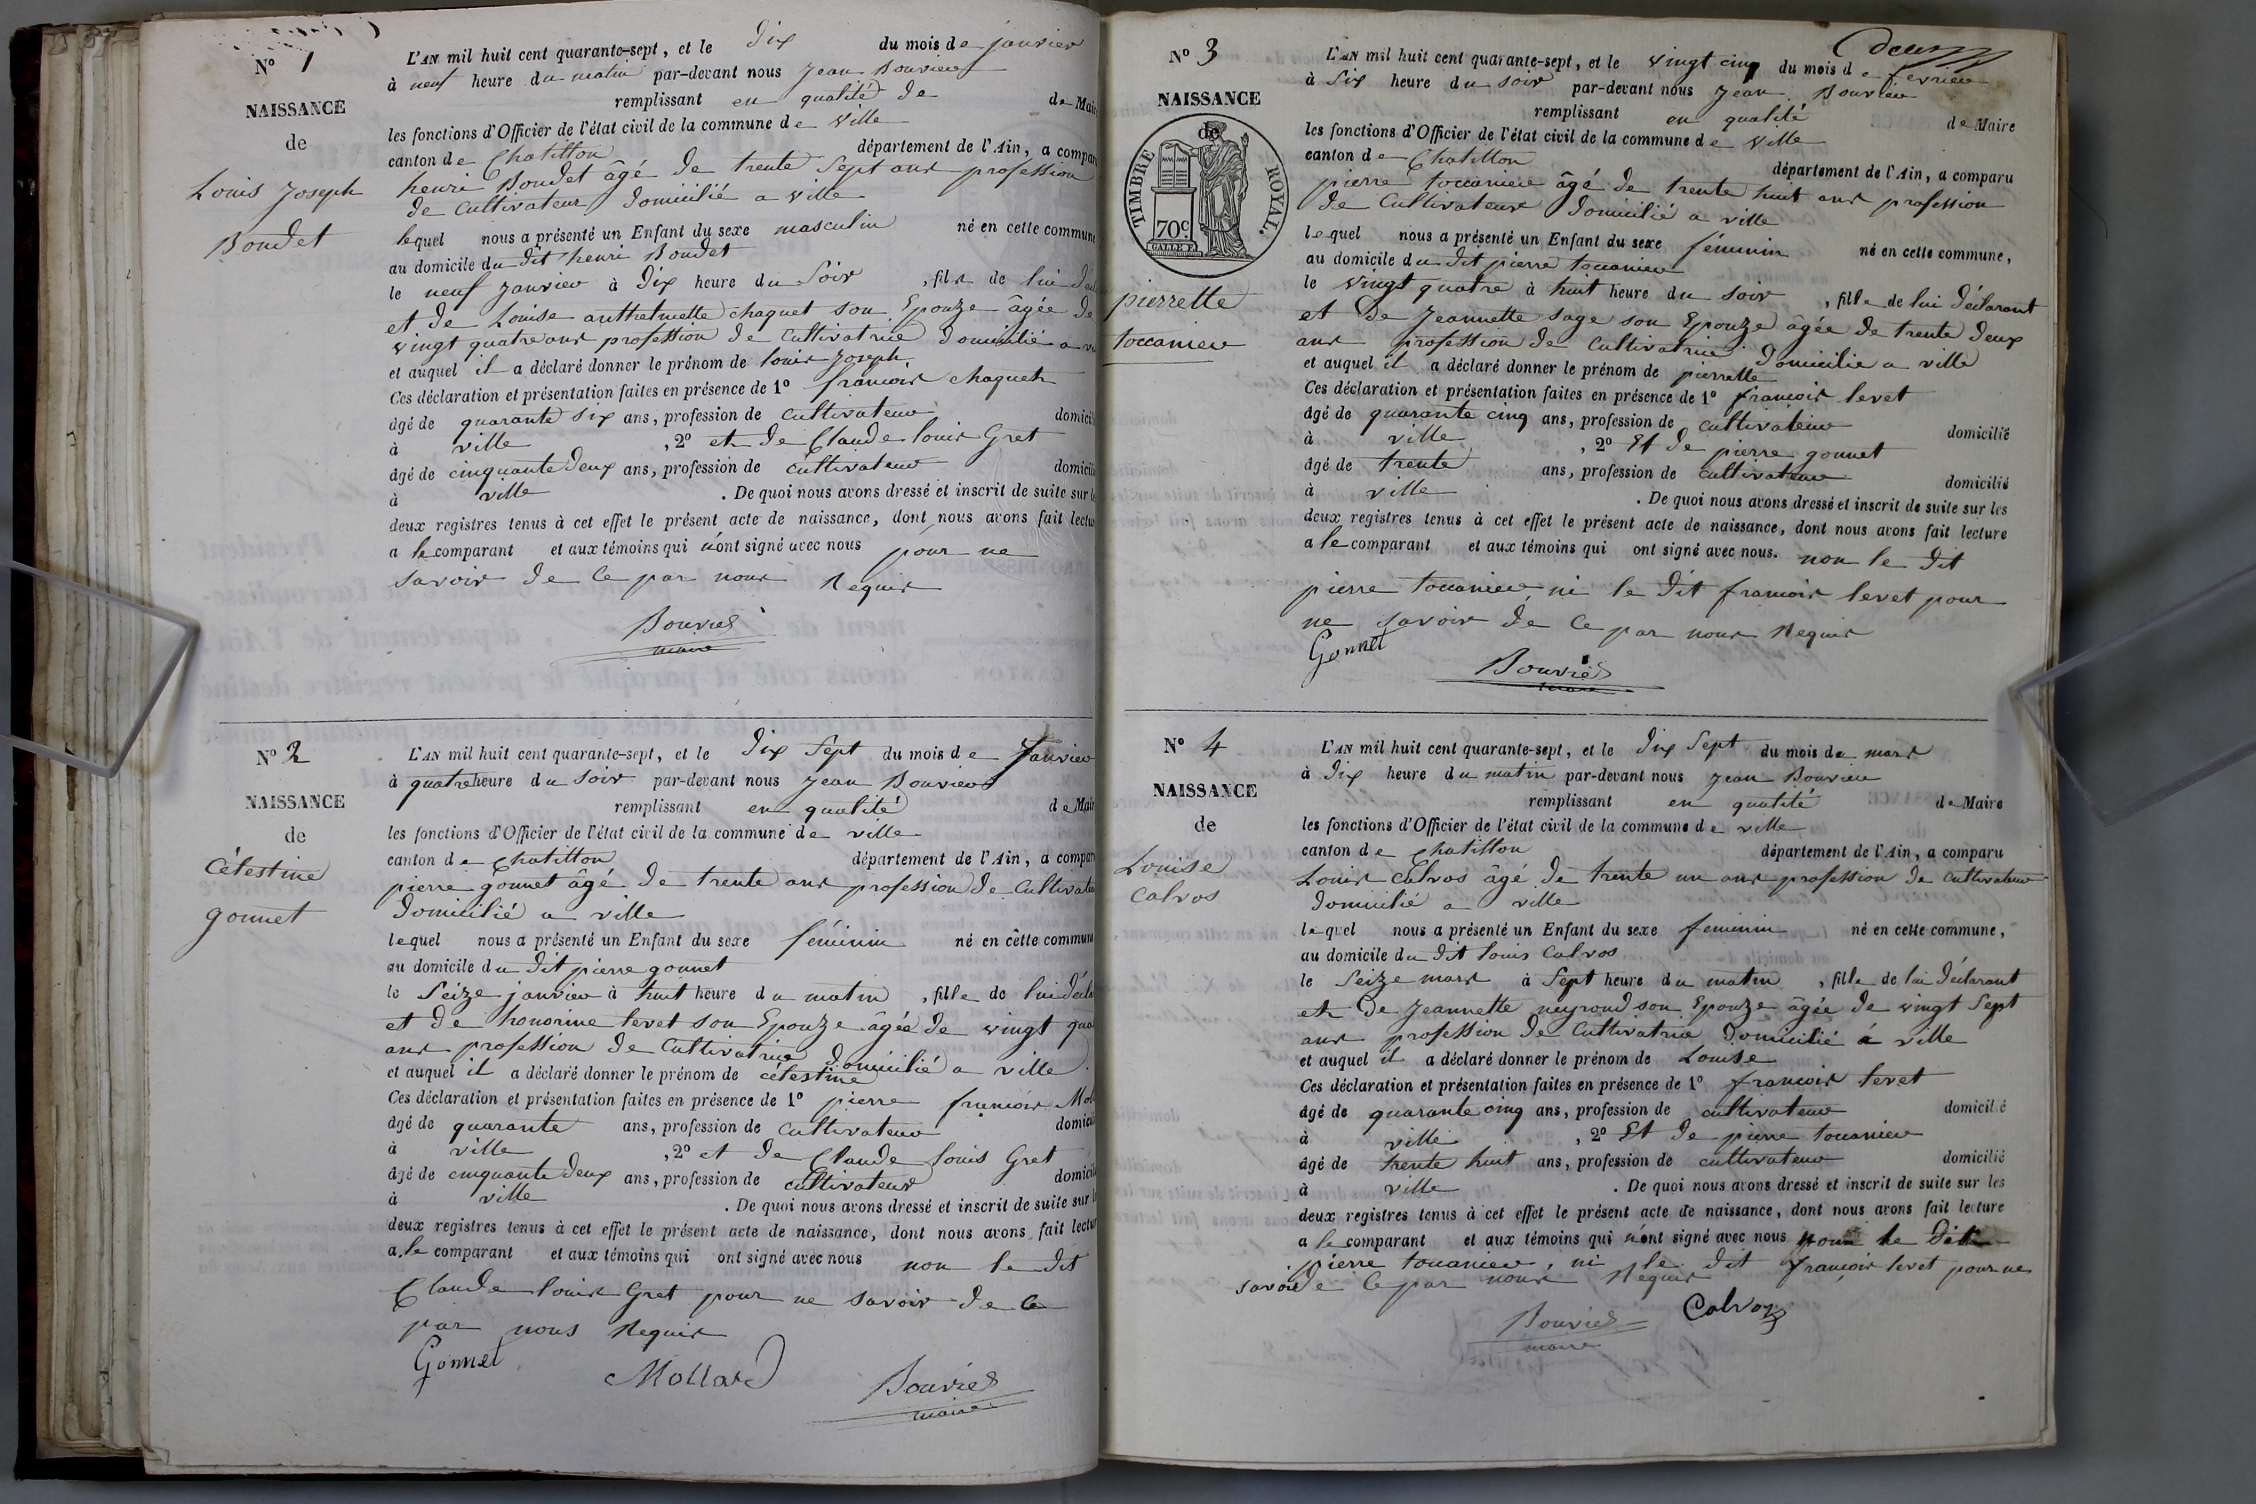 N° 1
NAISSANCE
de
Louis Joseph
Boudet
L'AN mil huit cent quarante-sept, et le dix du mois de janvier
à neuf heure du matin par-devant nous Jean Bouvier
remplissant en qualité de de Maire
les fonctions d'Officier de l'état civil de la commune de ville
canton de Chatillon département de l'Ain, a compar
henri Boudet âgé de trente Sept ans profession
de cultivateur domicilié a ville
lequel nous a présenté un Enfant du sexe masculin né en cette commune
au domicile du dit henri Boudet
le neuf Janvier à dix heure du Soir , fils de lui
et de Louise chaquet son Epouze âgée de
vingt quatre ans profession de cultivatrice domicilié a
et auquel il a déclaré donner le prénom de louis Joseph
Ces déclaration et présentation faites en présence de 1° francois chaquet
âgé de quarante six ans, profession de cultivateur domicil
à ville , 2° et de Claude louis Gret
âgé de cinquante deux ans, profession de cultivateur domicil
à ville . De quoi nous avons dressé et inscrit de suite sur
deux registres tenus à cet effet le présent acte de naissance, dont nous avons fait lectu
a le comparant et aux témoins qui n'ont signé avec nous pour ne
savoir de ce par nous Requis
Bouvier
maire
N° 2
NAISSANCE
de
Célestine
gonnet
L'AN mil huit cent quarante-sept, et le dix Sept du mois de Janvier
à quatre heure du soir par-devant nous Jean Bouvier
remplissant en qualité de Mair
les fonctions d'Officier de l'état civil de la commune de ville
canton de Chatillon département de l'Ain, a compar
pierre gonnet âgé de trente ans profession de cultivateu
domicilié a ville
lequel nous a présenté un Enfant du sexe féminin né en cette commun
au domicile du dit pierre gonnet
le Seize janvier à huit heure du matin , fille de lui décla
et de honorine levet son Epouze âgée de vingt qua
ans profession de Cultivatrice domicilié a ville
et auquel il a déclaré donner le prénom de célestine
Ces déclaration et présentation faites en présence de 1° pierre francois Mol
âgé de quarante ans, profession de cultivateur domicil
à ville , 2° et de Claude louis Gret
âgé de cinquante deux ans, profession de cultivateur domicil
à ville . De quoi nous avons dressé et inscrit de suite sur
deux registres tenus à cet effet le présent acte de naissance, dont nous avons fait lectur
a le comparant et aux témoins qui ont signé avec nous non le dit
Claude louis Gret pour ne savoir de ce
par nous Requis
Gonnet
Mollard
Bouvier
maire
deux
N° 3
NAISSANCE
de
TIMBRE ROYAL.
70c.
pierrette
toccanier
L'AN mil huit cent quarante-sept, et le vingt cinq du mois de fevrier
à Six heure du soir par-devant nous Jean Bouvier
remplissant en qualité de Maire
les fonctions d'Officier de l'état civil de la commune de ville
canton de Chatillon département de l'Ain, a comparu
pierre toccanier âgé de trente huit ans profession
de Cultivateur domicilié a ville
lequel nous a présenté un Enfant du sexe féminin né en cette commune,
au domicile du dit pierre toccanier
le vingt quatre à huit heure du soir , fille de lui déclarant
et de Jeannette sage son Epouze âgée de trente deux
ans profession de Cultivatrice domicilie a ville
et auquel il a déclaré donner le prénom de pierrette
Ces déclaration et présentation faites en présence de 1° francois levet
âgé de quarante cinq ans, profession de cultivateur domicilié
à ville , 2° Et de pierre gonnet
âgé de trente ans, profession de cultivateur domicilié
à ville . De quoi nous avons dressé et inscrit de suite sur les
deux registres tenus à cet effet le présent acte de naissance, dont nous avons fait lecture
a le comparant et aux témoins qui ont signé avec nous. non le dit
pierre toccanier, ni le dit francois levet pour
ne savoir de ce par nous Requis
Gonnet
Bouvier
maire
N° 4
NAISSANCE
de
Louise
Calvos
L'AN mil huit cent quarante-sept, et le dix Sept du mois de mars
à dix heure du matin par-devant nous Jean Bouvier
remplissant en qualité de Maire
les fonctions d'Officier de l'état civil de la commune de ville
canton de Chatillon département de l'Ain, a comparu
Louis Calvos âgé de trente un ans profession de cultivateur
domicilié a ville
lequel nous a présenté un Enfant du sexe feminin né en cette commune,
au domicile du dit louis Calvos
le Seize mars à Sept heure du matin , fille de lui déclarant
et de Jeannette neyroud son Epouze âgée de vingt Sept
ans profession de Cultivatrice domicilié à ville
et auquel il a déclaré donner le prénom de Louise
Ces déclaration et présentation faites en présence de 1° francois levet
âgé de quarante cinq ans, profession de cultivateur domicilié
à ville , 2° Et de pierre toccanier
âgé de trente huit ans, profession de cultivateur domicilié
à ville . De quoi nous avons dressé et inscrit de suite sur les
deux registres tenus à cet effet le présent acte de naissance, dont nous avons fait lecture
a le comparant et aux témoins qui n'ont signé avec nous le dit
pierre toccanier, ni le dit françois levet pour ne
savoir de ce par nous Requis
Bouvier
maire
Calvoz